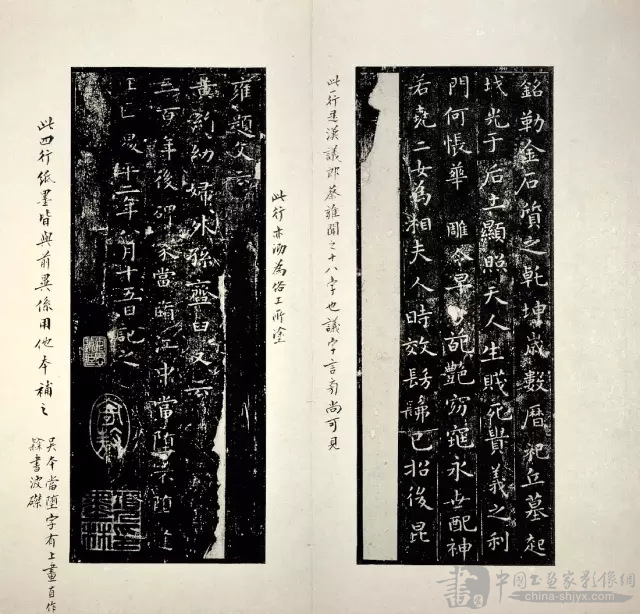 銘勒金石質之乾坤歲數曆祀丘墓起
坟光于后土顯照天人生賤死貴義之利
門何悵華雕零早葩艷窈窕永世配神
若堯二女為湘夫人時效髣髴以招後昆
此一行是漢議郎蔡雍聞之十八字也議字言旁尚可見
此行亦泐為俗工所塗
雍題文云
黃絹幼婦外孫齏臼又云
三百年後碑冢當墮江中當墮不墮逢
王叵二年八月十五日記之
此四行紙墨皆與前異係用他本補之
吳本當墮字有上畫直作
隸書波磔
中國書畫家影像網
china-shjyx.com